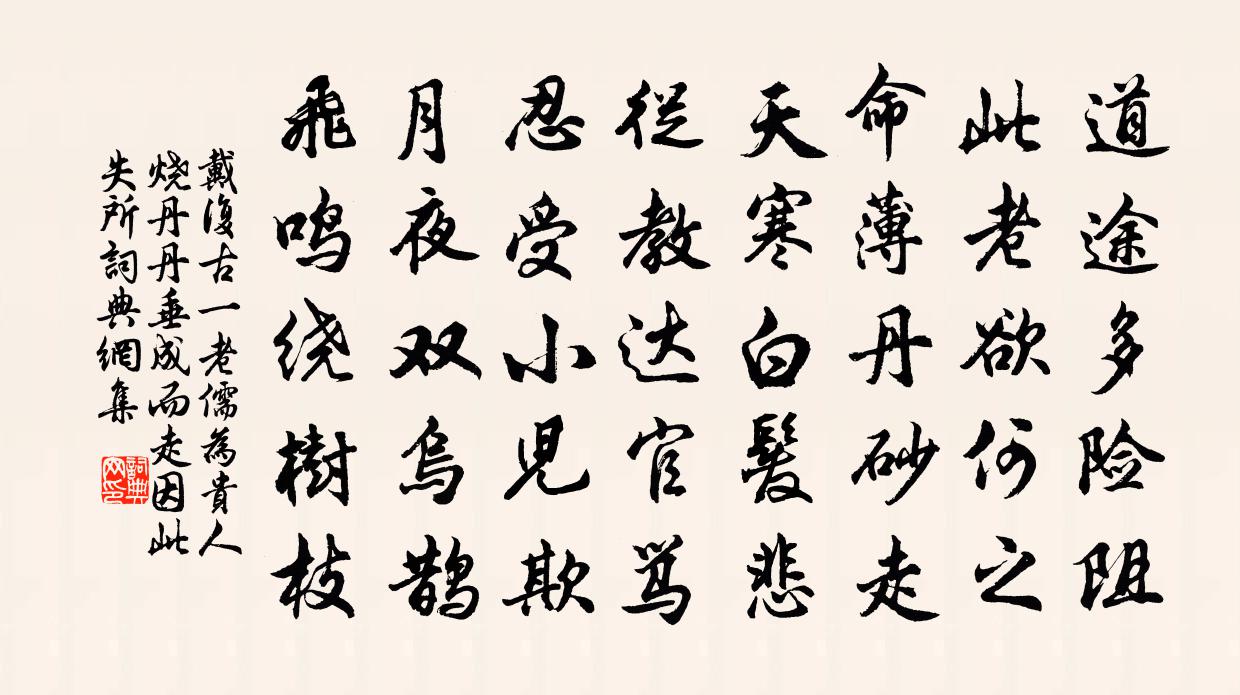 道途多险阻
此老欲何之
命薄丹砂走
天寒白髮悲
従教达官骂
忍受小児欺
月夜双烏鹊
飛鸣绕樹枝
戴復古一老儒為貴人
烧丹丹垂成而走因此
失所詞典網集
詞典网印